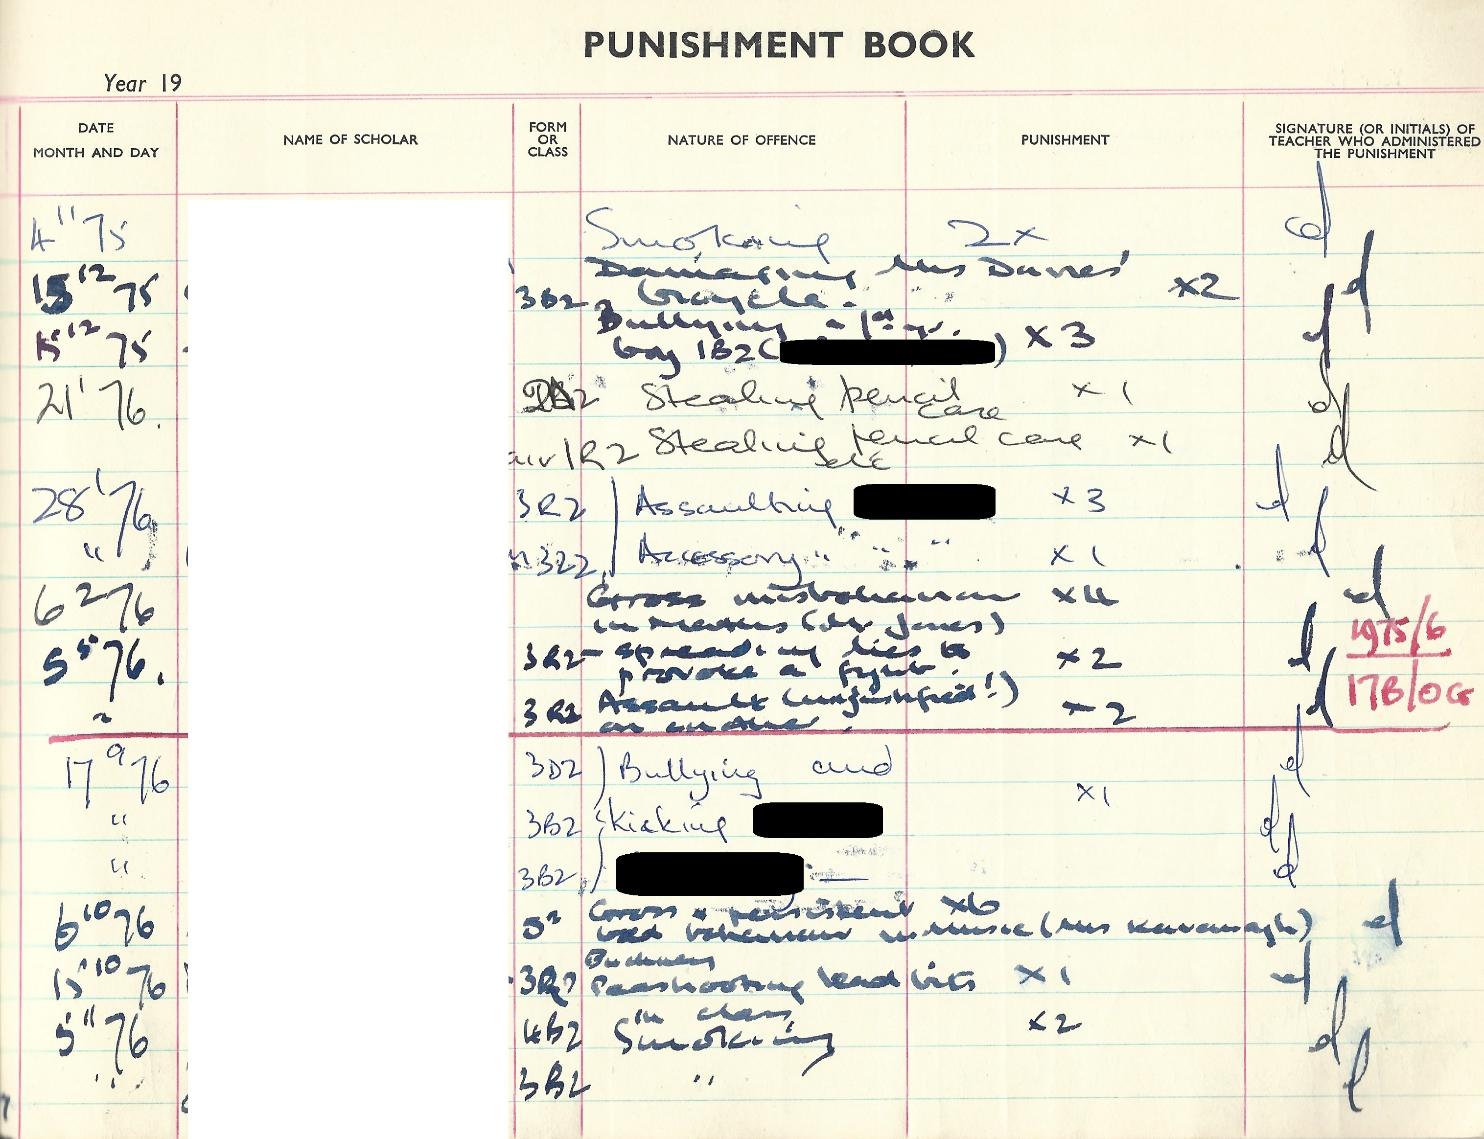 PUNISHMENT BOOK
Year 19
DATE MONTH AND DAY NAME OF SCHOLAR FORM OR CLASS NATURE OF OFFENCE PUNISHMENT SIGNATURE (OR INITIALS) OF TEACHER WHO ADMINISTERED THE PUNISHMENT
4 11 75 Smoking 2x
15 12 75 3B2 Damaging Mrs Davies'
bicycle. x2
15 12 75 Bullying a 1st yr.
boy 1B2 ( ) x3
21 1 76. 2 Stealing pencil case x1
1R2 Stealing pencil case x1
etc
28 1 76 3R2 Assaulting x3
" 322 Accessory " " " x1
6 2 76 Gross misbehaviour x4
in (Mr Jones)
1975/6
5 5 76. 3R2 spreading lies to x2
provoke a fight.
17B/0G
" 3R2 Assault (unjustified!) x2
on another
17 9 76 3D2 Bullying and x1
" 3B2 Kicking
" 3B2
6 10 76 5 Gross & persistent x6
bad behaviour in Music (Mrs Kavanagh)
15 10 76 3R2 Peashooting lead bits x1
in class
5 11 76 4B2 Smoking x2
" 3B2 "